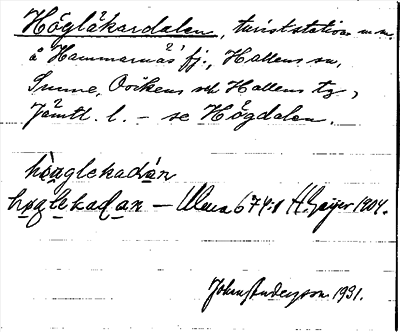 Höglåkardalen, turiststation m.m.
å Hammarnäs fj., Hallens sn,
Sunne, Ovikens och Hallens tg,
Jämtl. l. – se Högdalen.
høglekadån
høglekadan – Ulma 674:1 H. Geijer 1904.
Johan Andersson 1931.